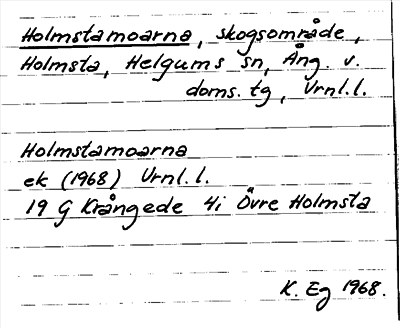 Holmstamoarna, skogsområde,
Holmsta, Helgums sn, Ång. v.
doms. tg, Vrnl.l.
Holmstamoarna
ek (1968) Vrnl.l.
19 G Krångede 4i Övre Holmsta
K. Eg 1968.